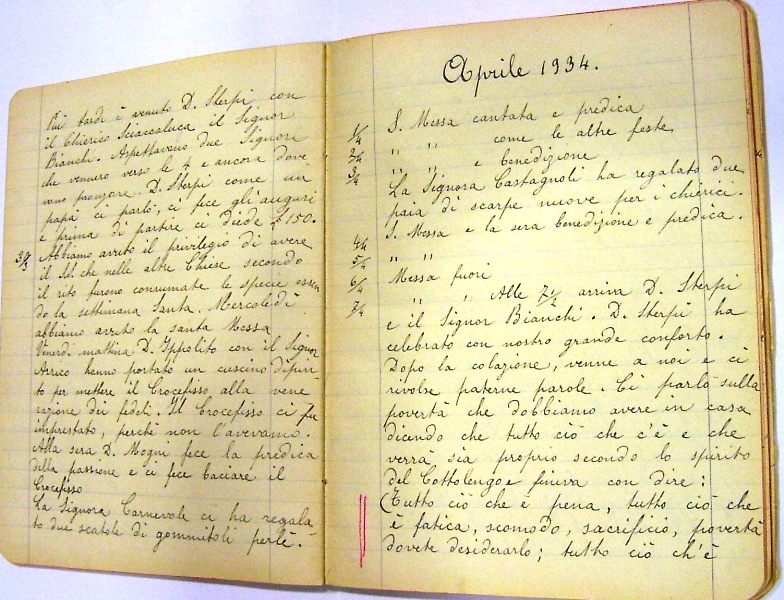 Più tardi è venuto D. Sterpi con
il Chierico Sciaccaluca il Signor
Bianchi. Aspettavamo due Signori
che vennero verso le 4 e ancora dove-
vano pranzare. D. Sterpi come un
papà ci parlò, ci fece gli auguri
e prima di partire ci diede £ 150.
Abbiamo avuto il privilegio di avere
il SS. che nelle altre Chiese secondo
il rito furono consumate le specie essen
do la settimana Santa. Mercoledì
abbiamo avuto la santa Messa
Venerdì mattina D. Ippolito con il Signor
Arrico hanno portato un cuscino dipin-
to per mettere il Crocefisso alla vene
razione dei fedeli. Il Crocefisso ci fu
imprestato, perchè non l'avevamo.
Alla sera D. Mogni fece la predica
della passione e ci fece baciare il
Crocefisso
La Signora Carnevale ci ha regala-
to due scatole di gommitoli perlé.
Aprile 1934.
1/4 S. Messa cantata e predica
2/4 " " come le altre feste
3/4 " " e benedizione
La Signora Castagnoli ha regalato due
paia di scarpe nuove per i chierici.
4/4 S. Messa e la sera benedizione e predica.
5/4 " "
6/4 Messa fuori
7/4 " " Alle 7 1/2 arriva D. Sterpi
e il Signor Bianchi. D. Sterpi ha
celebrato con nostro grande conforto.
Dopo la colazione, venne a noi e ci
rivolse paterne parole. Ci parlò sulla
povertà che dobbiamo avere in casa
dicendo che tutto ciò che c'è e che
verrà sia proprio secondo lo spirito
del Cottolengo e finiva con dire:
(Tutto ciò che è pena, tutto ciò che
è fatica, scomodo, sacrificio, povertà
dovete desiderarlo; tutto ciò ch'è